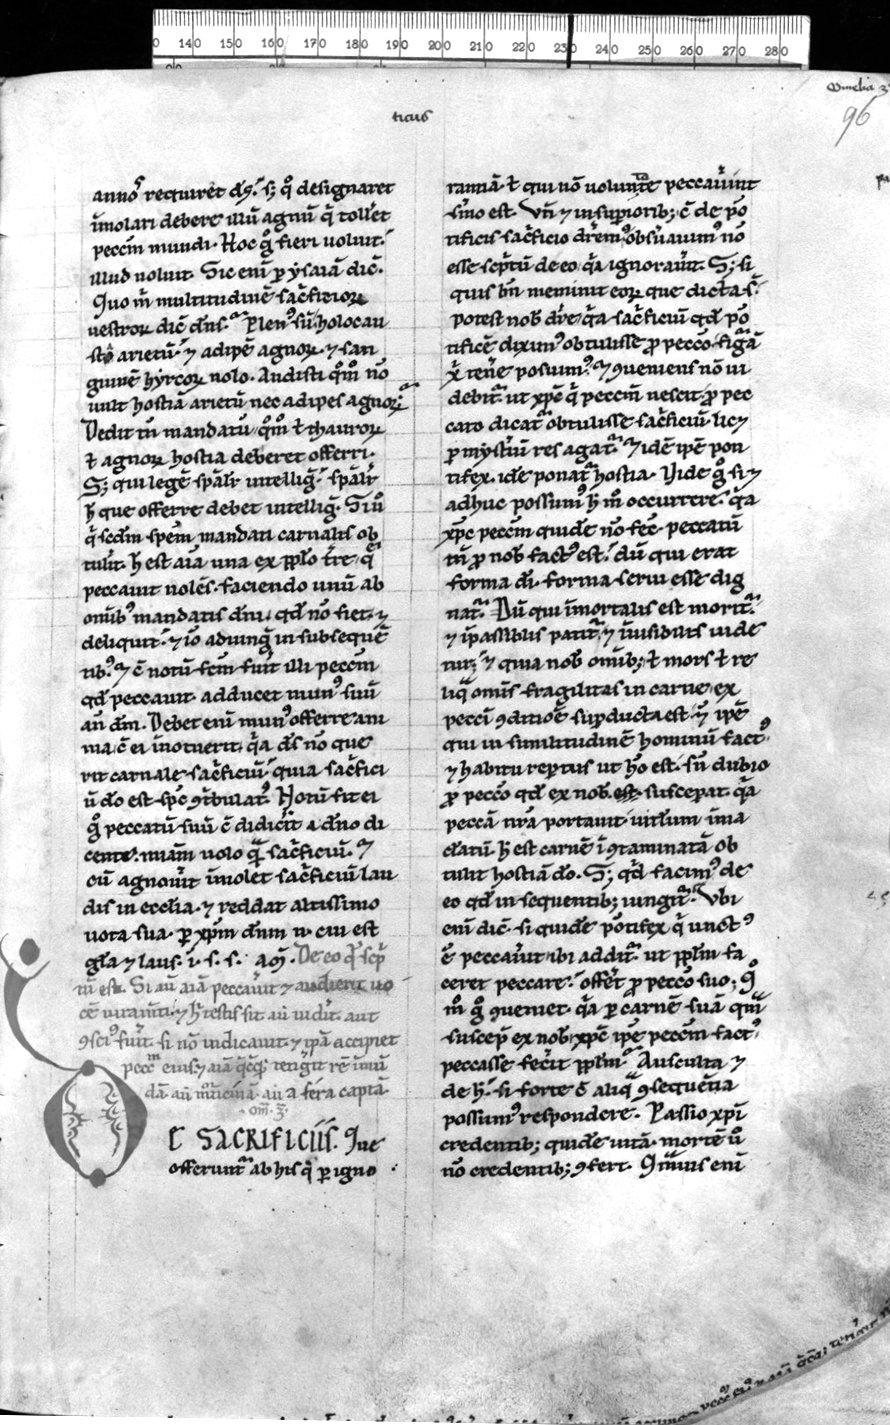 ticus
Omelia 3
96
annoꝝ requiret dꝰ. sꝫ qͦ designaret
īmolari debere illū agnū q̄ tolľet
peccm̄ mundi. Hoc gͦ fieri uoluit.
illud noluit. Sic enī ꝑ ysaiā dic̄.
Quo m̄ multitudinē sac̄ficioꝝ
uestroꝝ dic̄ dn̄s. Plenꝰ sū. holocau
stō arietū. ⁊ adipē agnoꝝ. ⁊ san
guinē hyrcoꝝ nolo. Audisti qm̄ nō
uult hostiā arietū nec adipes agnoꝝ.
Dedit tn̄ mandatū qm̄ ł thauroꝝ
ł agnoꝝ hostia deberet offerri.
Sꝫ qui legē sp̄alr̄ intelligit. sp̄alr̄
h̄ que offerre debet intelliḡ. Si ū
q̄ scd̄m spem̄ mandati carnalis ob
tulit. h̄ est aīa una ex pp̄lo tr̄e q̄
peccauit nolēs. faciendo unū ab
omībꝰ mandatis dn̄i. qd̄ nō fiet. ⁊
deliquit. ⁊ iō adiunḡ in subsequē
tibꝰ. ⁊ c̄ notū fcm̄ fuit illi peccm̄
qd̄ peccauit. adducet munꝰ suū
an̄ dm̄. Debet enī munꝰ offerre ani
ma c̄ ei inotuerit. q̄a ds̄ nō que
rit carnale sac̄ficiū. quia sac̄fici
ū dō est sp̄c 9t̄bulatꝰ. Notū sit ei
gͦ peccatū suū c̄ didicīt a dn̄o di
cente. miām uolo q̄ sac̄ficiū. ⁊
cū agnouīt īmolet sac̄ficiū lau
dis in ecclīa. ⁊ reddat altissimo
uota sua. ꝑ xp̄m dn̄m n̄. cui est
gl̄a ⁊ laus. ī. s. s. am̄. De eo q̄ sc̄p
tū est. Si aū aīā peccauit ⁊ audierit uo
cē iuramti. ⁊ h̄ testis sit aū uidit. aut
9sciꝰ fuīt. si nō indicauit. ⁊ ip̄a accipiet
pecc̄m eiusꝫ aīā q̄cq̄ tengīt rē īmū
dā. aū mͦticinā. aū a fera captā.
om̄. 3.
D E SACRIFICIIS. Que
offeruntꝰ ab his q̄ ꝑ igno
rantiā. ł qui nō uoluntate peccauīnt
sīmo est. Vn̄ ⁊ in supīoribꝫ c̄ de pō
tificis sac̄ficio dr̄emꝰ obsūauimꝰ nō
esse scp̄tū de eo q̄a ignorauīt. Sꝫ si
quis bn̄ meminit eoꝝ que dicta s̄.
potest nob̄ dr̄e q̄a sac̄ficiū qd̄ pō
tificē diximꝰ obtulisse ꝓ peccō. figͣā
x̄ tenē posuimꝰ. ⁊ 9ueniens nō ui
debit̄ ut xp̄c q̄ peccm̄ nescit. ꝓ pec
cato dicat̄ obtulisse sac̄ficiū. licꝫ
ꝑ mystīū res agat̄. ⁊ idē ip̄e pon
tifex. idē ponat̄ hostia. Vide gͦ si ⁊
adhuc possumꝰ h̄ m̄ occurrere. q̄a
xp̄c peccm̄ quidē nō fec̄. peccatū
tn̄ ꝓ nob̄ factꝰ est. dū qui erat
forma dī. forma serui esse dig
nat̄. Dū qui īmortalis est morit̄.
⁊ īpassiblis patit̄. ⁊ īuisibilis uide
tur. ⁊ quia nob̄ omībꝫ ł mors ł re
liq̄ omīs fragilitas in carne. ex
peccī 9ditiōē supducta est. ⁊ ip̄e
qui in similitudinē hominū factꝰ
⁊ habitu reptus ut hō est. sn̄ dubio
ꝓ peccō qd̄ ex nob̄. susceperat. q̄a
peccā nr̄a portauit. uitlum īma
clatū. h̄ est carnē ī9taminatā ob
tulit hostiā dō. Sꝫ qd̄ facimꝰ de
eo qd̄ in sequentibꝫ iungit̄. Vbi
enī dic̄. si quidē pōtifex q̄ unctꝰ
ē peccauīt. ibi addit̄. ut pp̄lm̄ fa
ceret peccare. offēt ꝓ peccō suo. Qͦ
m̄ gͦ 9ueniet. q̄a ꝑ carnē suā qm̄
suscep̄ ex nob̄. xp̄c ip̄e peccm̄ factꝰ
peccasse fecīt pp̄lmꝰ. Ausculta ⁊
de h̄. si forte ē aliq̄ 9sequētia
possumꝰ respondere. Passio xp̄i
credentibꝫ quidē uitā. mortē ū
nō credentibꝫ 9fert. Qm̄uis enī